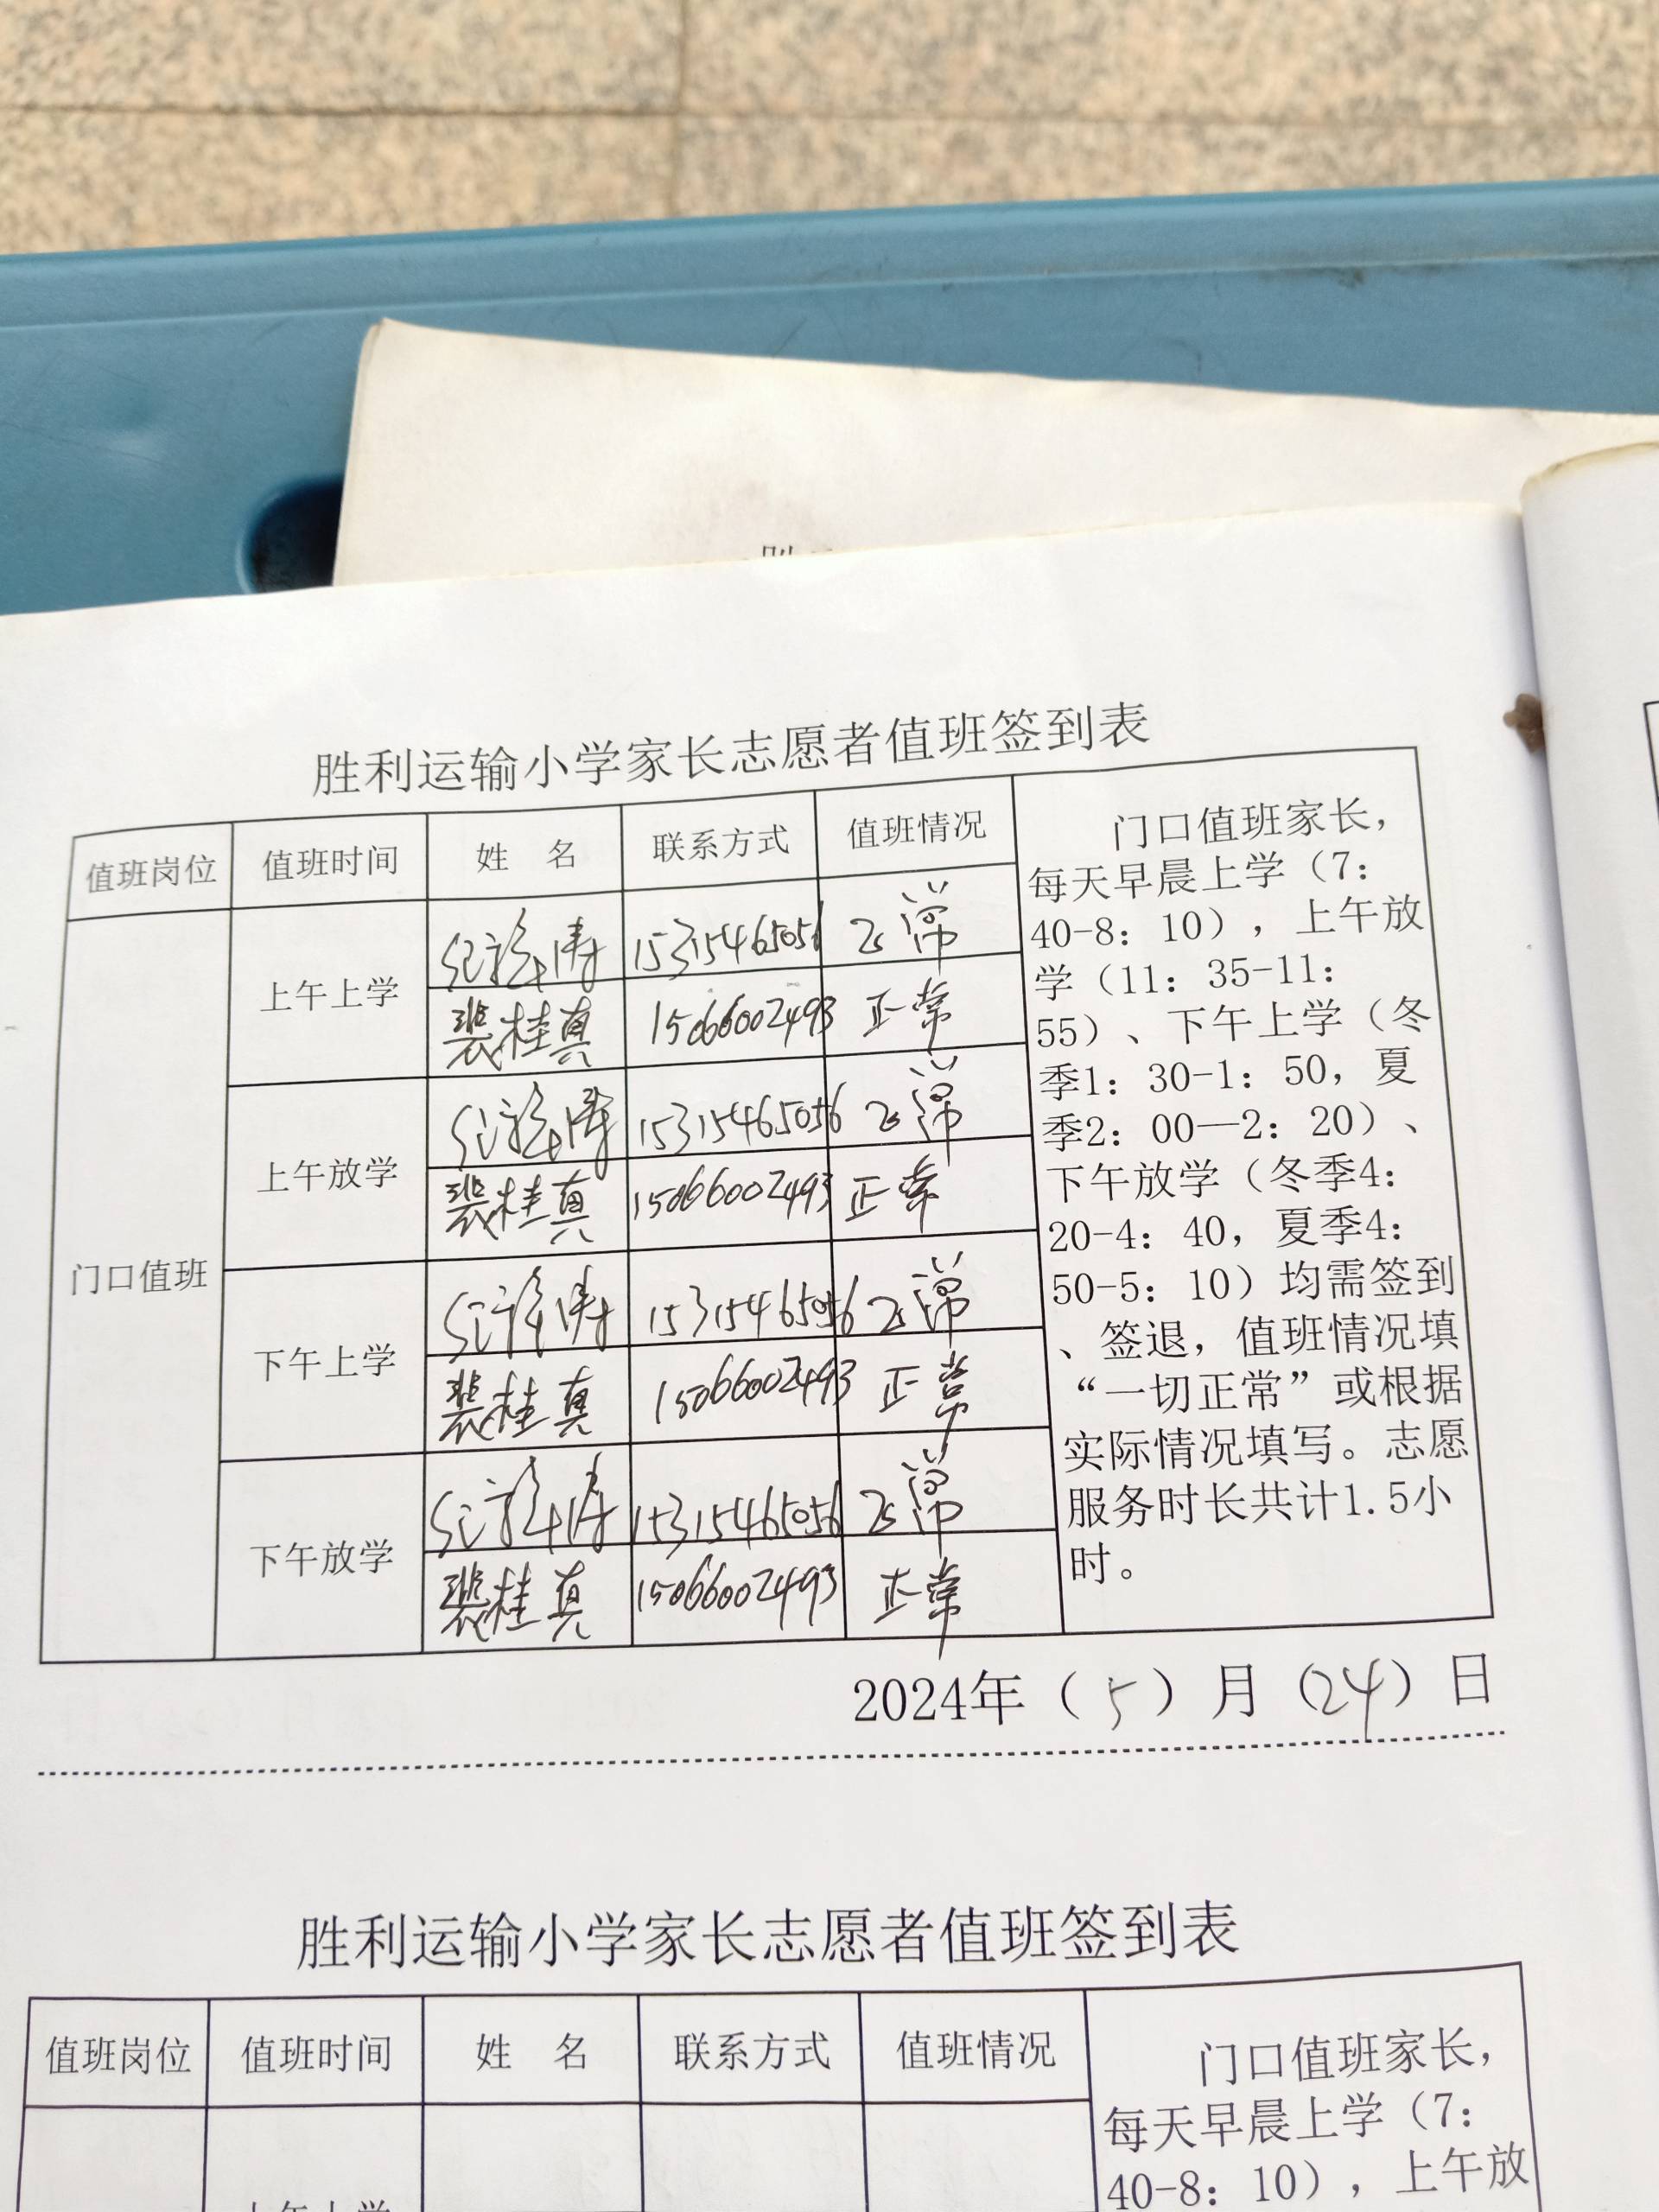 胜利运输小学家长志愿者值班签到表
值班岗位 值班时间 姓 名 联系方式 值班情况
门口值班
上午上学
15315465056 正常
裴桂真 15066002493 正常
上午放学
15315465056 正常
裴桂真 15066002493 正常
下午上学
15315465056 正常
裴桂真 15066002493 正常
下午放学
15315465056 正常
裴桂真 15066002493 正常
门口值班家长，
每天早晨上学（7：
40-8：10），上午放
学（11：35-11：
55）、下午上学（冬
季1：30-1：50，夏
季2：00—2：20）、
下午放学（冬季4：
20-4：40，夏季4：
50-5：10）均需签到
、签退，值班情况填
“一切正常”或根据
实际情况填写。志愿
服务时长共计1.5小
时。
2024年（5）月（24）日
胜利运输小学家长志愿者值班签到表
值班岗位 值班时间 姓 名 联系方式 值班情况
上午上学
门口值班家长，
每天早晨上学（7：
40-8：10），上午放